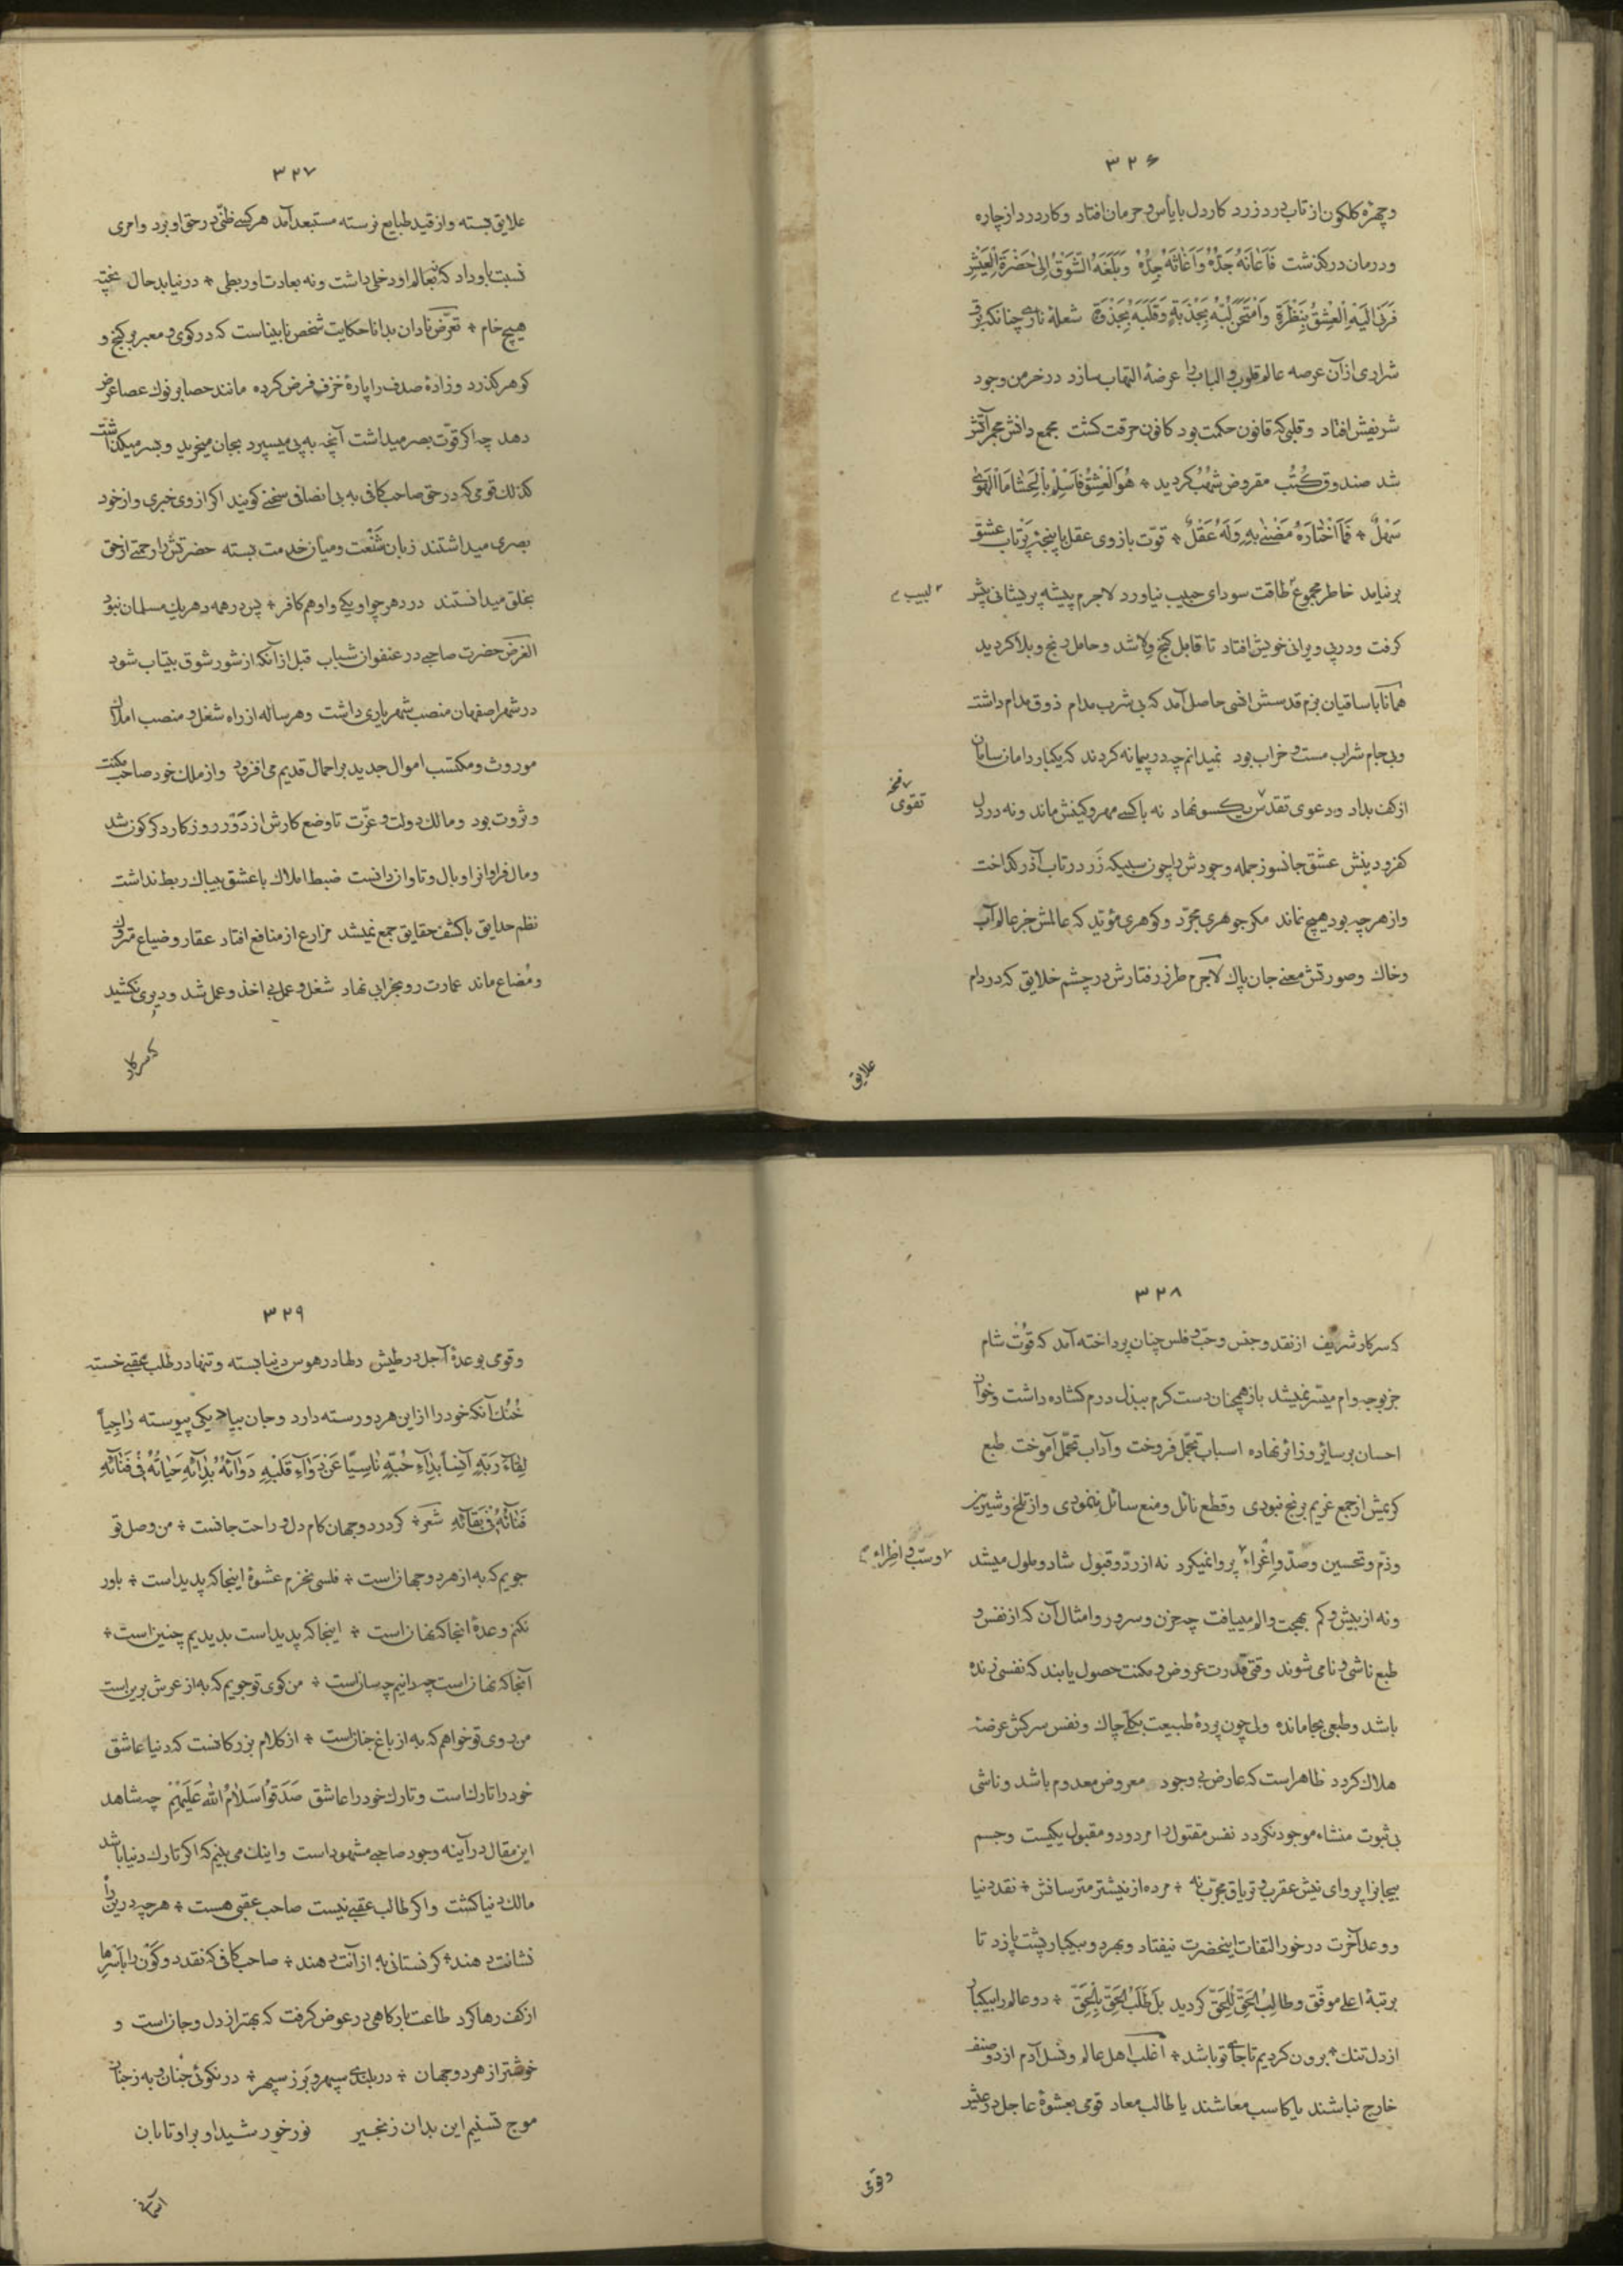 ۳۲۶
وچهرهٔ کلکون از تاب درد زرد کار دل با یأس و حرمان افتاد وکار درد از چاره
ودرمان درکذشت فَاَعٰانَهُ جَدُّهُ وَاَغٰاثَهُ جِدُّهُ وَبَلَّغَهُ الشَّوْقُ اِلیٰ حَضْرَةِ الْعِشْقِ
فَرَنٰا اِلَیْهِ الْعِشْقُ بِنَظْرَةٍ وَامْتَحَنَ لُبَّهُ بِجَذْبَةٍ وَقَلْبَهُ بِجَذْوَةٍ شعلهٔ ناری چنانکه برق
شراری از آن عرصه عالم قلوب و الباب را عرضهٔ التهاب سازد در خرمن وجود
شریفش افتاد وقلبی که قانون حکمت بود کانون حرقت کشت مجمع دانش مجمر آتش
شد صندوق کُتُب مقروض شُهُب کردید ٭ هُوَ الْعِشْقُ فَاسْلَمْ بِالْحَشٰا مَا الْهَویٰ
سَهْلٌ ٭ فَمَا اخْتٰارَهُ مُضْنیً بِهِ وَلَهُ عَقْلٌ ٭ قوّت بازوی عقل با پنجهٔ پرتاب عشق
برنیامد خاطر مجموع طاقت سودای حبیب نیاورد لاجرم پیشه پریشانی پیش
لبیب م
کرفت ودر پی ویرانی خویش افتاد تا قابل کنج ولا شد وحامل رنج وبلا کردید
همانا با ساقیان بزم قدسش انسی حاصل آمد که بی شرب مدام ذوق مدام داشت
وبی جام شراب مست و خراب بود نمیدانم چه در پیمانه کردند که یکبار دامان سامان
از کف بداد ودعوی تقدّس یکسو نهاد نه با کسی مهر وکینش ماند ونه در دل
تقوی نسخه
کفر ودینش عشق جانسوز جمله وجودش را چون سبیکه زَر در تاب آذر کداخت
واز هر چه بود هیچ نماند مکر جوهری مجرّد وکوهری مؤیّد که عالمش جز عالم آب
وخاک وصورتش معنی جان پاک لاجرم طرز رفتارش در چشم خلایق که در دام
علایق
۳۲۷
علایق بسته واز قید طبایع نرسته مستبعد آمد هر کسی ظنّی در حق او برد وامری
نسبت باو داد که نه بعالم او دخلی داشت ونه بعادت او ربطی ٭ درنیابد حال پخته
هیچ خام ٭ تعرّض نادان بدانا حکایت شخص نابیناست که در کوی و معبر بر کنج و
کوهر کذرد وزادهٔ صدف را پارهٔ خزف فرض کرده مانند حصا بر نوک عصا عرض
دهد چه اکر قوّت بصر میداشت آنچه به پی میسپرد بجان میخرید وبسر میکذاشت
کذلک قومی که در حق صاحب کافی به بی انصافی سخنی کویند اکر از وی خبری واز خود
بصری میداشتند زبان شُنْعَت ومیان خدمت بسته حضرتش را رحمتی از حق
بخلق میدانستند در دهر چو او یکی واو هم کافر ٭ پس در همه دهر یک مسلمان نبود
الغرض حضرت صاحبی در عنفوان شباب قبل از آنکه از شور شوق بیتاب شود
در شهر اصفهان منصب شهریاری داشت وهر ساله از راه شغل و منصب املاک
موروث ومکتسب اموال جدید بر احمال قدیم می افزود واز ملک خود صاحب مکنت
وثروت بود ومالک دولت و عزّت تا وضع کارش از دَوْر روزکار دکرکون شد
ومال فراوانرا وبال وتاوان دانست ضبط املاک با عشق بیباک ربط نداشت
نظم حدایق با کشف حقایق جمع نمیشد مزارع از منافع افتاد عقار وضیاع متروک
ومُضاع ماند عمارت رو بخرابی نهاد شغل و عمل بی اخذ وعمل شد ودیری نکشید
که سرکار
۳۲۸
که سرکار شریف از نقد وجنس وحب و فلس چنان پرداخته آمد که قُوْت شام
جز بوجه وام میسّر نمیشد باز همچنان دست کرم ببذل درم کشاده داشت وخوان
احسان بر سایر وزائر نهاده اسباب تجمّل فروخت وآداب تحمّل آموخت طبع
کریمش از جمع غریم برنج نبودی وقطع نائل ومنع سائل ننمودی واز تلخ وشیرین
وذم وتحسین وصدّ واِغْراء پروا نمیکرد نه از ردّ و قبول شاد وملول میشد
وسبّ و اطراء م
ونه از بیش و کم بهجت والم مییافت چه حزن وسرور وامثال آن که از نفس و
طبع ناشی و نامی شوند وقتی قدرت عروض و مکنت حصول یابند که نفسی زنده
باشد وطبعی بجا مانده ولی چون پردهٔ طبیعت بکلّی چاک ونفس سرکش عرضهٔ
هلاک کردد ظاهر است که عارض بی وجود معروض معدوم باشد وناشی
بی ثبوت منشاء موجود نکردد نفس مقتول را مردود ومقبول یکیست وجسم
بیجانرا پروای نیش عقرب و تریاق مجرّب نه ٭ مرده از نیشتر مترسانش ٭ نقد دنیا
ووعد آخرت در خور التفات اینحضرت نیفتاد وبهر دو بیکبار پشت پا زد تا
برتبهٔ اعلی موفّق وطالِبُ الحَقِّ لِلْحَقّ کردید بَلْ طَلَبُ الحَقِّ بِالْحَقِّ ٭ دو عالم را بیکبار
از دل تنک ٭ برون کردیم تا جای تو باشد ٭ اغلب اهل عالم ونسل آدم از دو صنف
خارج نباشند یا کاسب معاشند یا طالب معاد قومی بعشوهٔ عاجل در عیش
وقومی
۳۲۹
وقومی بوعدهٔ آجل در طیش دلها در هوس دنیا بسته وتنها در طلب عقبی خسته
خُنُک آنکه خود را از این هر دو رسته دارد وجان بیاد یکی پیوسته رٰاجِیاً
لِقٰاءَ رَبِّهِ آنِساً بِدٰاءِ حُبِّهِ نٰاسِیًا عَنْ دَوٰاءِ قَلْبِهِ دَوٰائُهُ بِدٰائِهِ حَیٰاتُهُ فِی فَنٰائِهِ
فَنٰائُهُ فِی بَقٰائِهِ شعر ٭ کر در دو جهان کام دل و راحت جانست ٭ من وصل تو
جویم که به از هر دو جهان است ٭ فلسی نخرم عشوهٔ اینجا که پدید است ٭ باور
نکنم وعدهٔ انجا که نهان است ٭ اینجا که پدید است بدیدیم چنین است ٭
آنجا که نهان است چه دانیم چه سانست ٭ من کوی تو جویم که به از عرش برین است
من روی تو خواهم که به از باغ جنان است ٭ از کلام بزرکانست که دنیا عاشق
خود را تارک است وتارک خود را عاشق صَدَقُوا سَلاٰمُ اللهِ عَلَیْهِمْ چه شاهد
این مقال در آینه وجود صاحبی مشهود است واینک می بینیم که اکر تارک دنیا باشد
مالک دنیا کشت واکر طالب عقبی نیست صاحب عقبی هست ٭ هر چه در این راه
نشانت دهند ٭ کر نستانی به از آنت دهند ٭ صاحب کافی که نقد دو کَوْن را بِاَسْرِها
از کف رها کرد طاعت بارکاهی در عوض کرفت که بهتر از دل وجان است و
خوشتر از هر دو جهان ٭ در بلندی سپهر و بَر ز سپهر ٭ در نکوئی جِنان و به ز جنان
موج تسنیم این بدان زنجیر نور خورشید او براو تابان